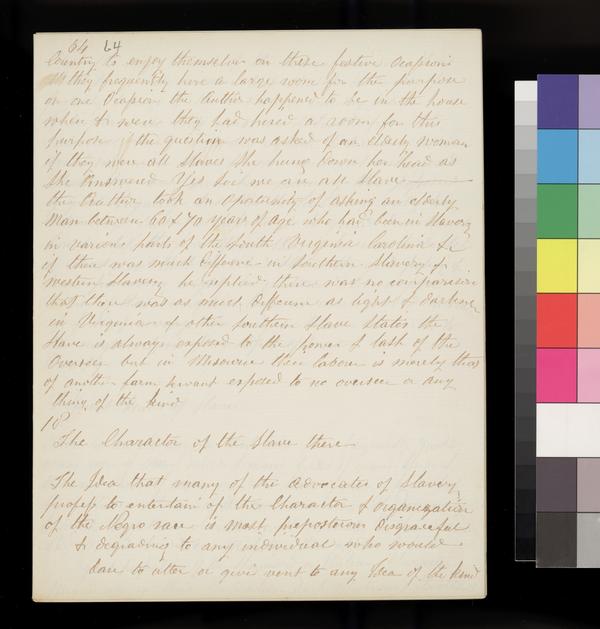 64 64
Country to enjoy themselves on these festive Ocasions
they frequently hire a large room for the purpose
on one Ocasion the Author happened to be in the house
when & were they had hired a room for this
purpose the question was asked of an elderly woman
if they were all Slaves She hung down her head as
She Answered Yes Sir we are all Slaves
the Author took an Oportunity of asking an elderly
Man between 60 & 70 years of age who had been in Slavery
in various parts of the South Virginia Carolina &c
if there was much difference in Southern Slavery &
western Slavery he replied there was no comparison
that there was as much difference as light & darkness
in Virginia & other southern Slave States the
Slave is always exposed to the power & lash of the
Overseer but in Missourie their labour is merely that
of another farm servant exposed to no overseer or any
thing of the kind
10
The Charactor of the Slave there
The Idea that many of the advocates of Slavery
profess to entertain of the Charactor & organization
of the Negro race is most preposterous disgraceful
& degrading to any individual who would
dare to utter or give vent to any Idea of the kind